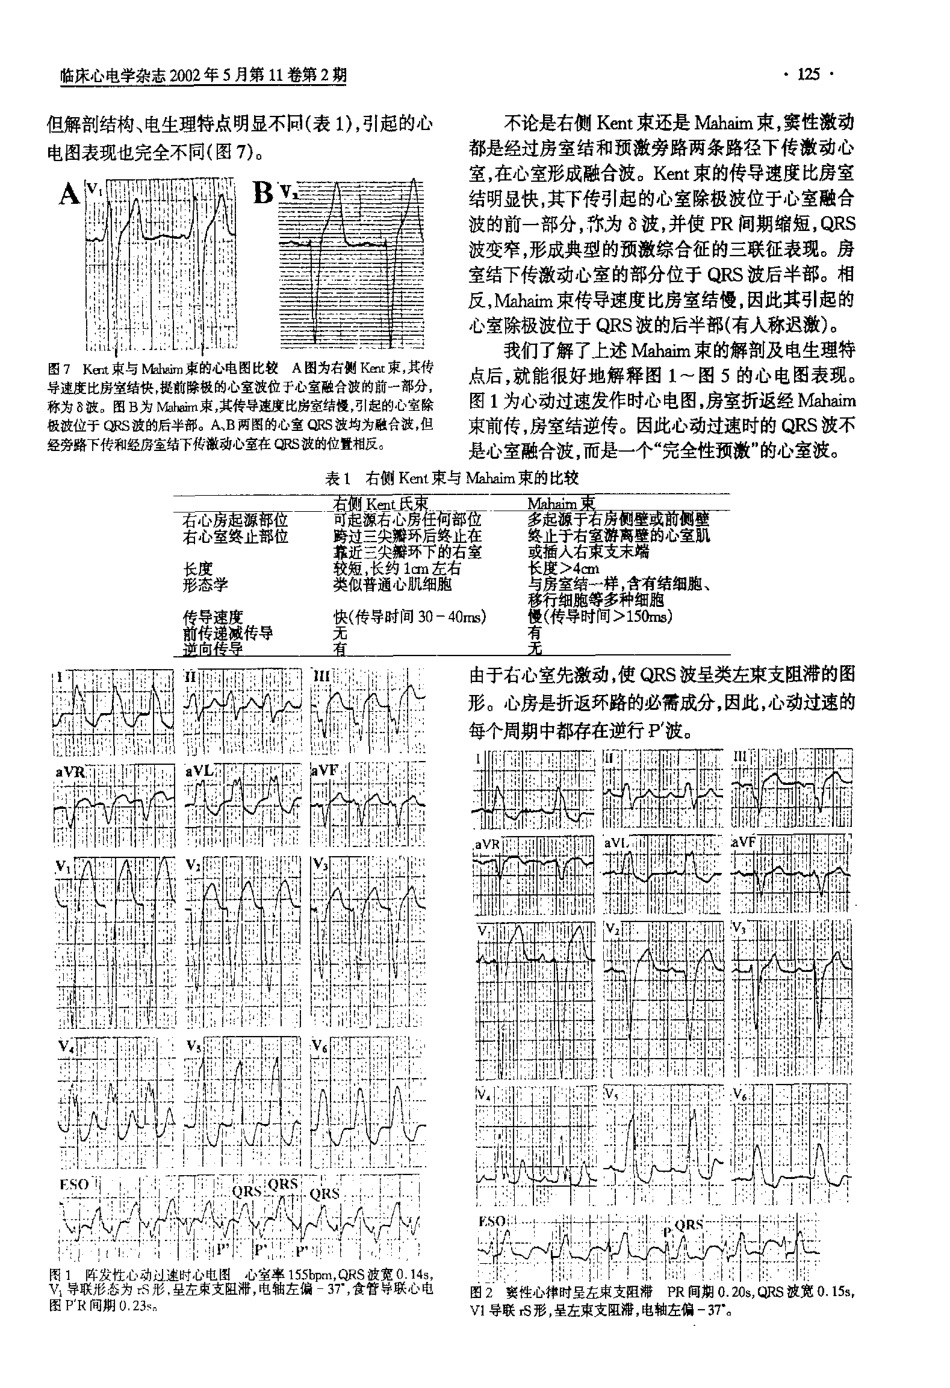 临床心电学杂志 2002 年 5 月第 11 卷第 2 期
· 125 ·
但解剖结构、电生理特点明显不同(表 1),引起的心
电图表现也完全不同(图 7)。
A V₁
B
图 7 Kent 束与 Mahaim 束的心电图比较 A 图为右侧 Kent 束,其传
导速度比房室结快,提前除极的心室波位于心室融合波的前一部分,
称为 δ 波。图 B 为 Mahaim 束,其传导速度比房室结慢,引起的心室除
极波位于 QRS 波的后半部。A、B 两图的心室 QRS 波均为融合波,但
经旁路下传和经房室结下传激动心室在 QRS 波的位置相反。
不论是右侧 Kent 束还是 Mahaim 束,窦性激动
都是经过房室结和预激旁路两条路径下传激动心
室,在心室形成融合波。Kent 束的传导速度比房室
结明显快,其下传引起的心室除极波位于心室融合
波的前一部分,称为 δ 波,并使 PR 间期缩短,QRS
波变窄,形成典型的预激综合征的三联征表现。房
室结下传激动心室的部分位于 QRS 波后半部。相
反,Mahaim 束传导速度比房室结慢,因此其引起的
心室除极波位于 QRS 波的后半部(有人称迟激)。
我们了解了上述 Mahaim 束的解剖及电生理特
点后,就能很好地解释图 1~图 5 的心电图表现。
图 1 为心动过速发作时心电图,房室折返经 Mahaim
束前传,房室结逆传。因此心动过速时的 QRS 波不
是心室融合波,而是一个“完全性预激”的心室波。
表 1 右侧 Kent 束与 Mahaim 束的比较
右侧 Kent 氏束 Mahaim 束
右心房起源部位 可起源右心房任何部位 多起源于右房侧壁或前侧壁
右心室终止部位 跨过三尖瓣环后终止在 终止于右室游离壁的心室肌
靠近三尖瓣环下的右室 或插入右束支末端
长度 较短,长约 1cm 左右 长度>4cm
形态学 类似普通心肌细胞 与房室结一样,含有结细胞、
移行细胞等多种细胞
传导速度 快(传导时间 30－40ms) 慢(传导时间>150ms)
前传递减传导 无 有
逆向传导 有 无
I II III
aVR aVL aVF
V₁ V₂ V₃
V₄ V₅ V₆
ESO QRS QRS QRS
P' P' P'
图 1 阵发性心动过速时心电图 心室率 155bpm,QRS 波宽 0.14s,
V₁ 导联形态为 rS 形,呈左束支阻滞,电轴左偏－37°,食管导联心电
图 P'R 间期 0.23s。
由于右心室先激动,使 QRS 波呈类左束支阻滞的图
形。心房是折返环路的必需成分,因此,心动过速的
每个周期中都存在逆行 P'波。
I II III
aVR aVL aVF
V₁ V₂ V₃
V₄ V₅ V₆
ESO P QRS
图 2 窦性心律时呈左束支阻滞 PR 间期 0.20s,QRS 波宽 0.15s,
V1 导联 rS 形,呈左束支阻滞,电轴左偏－37°。